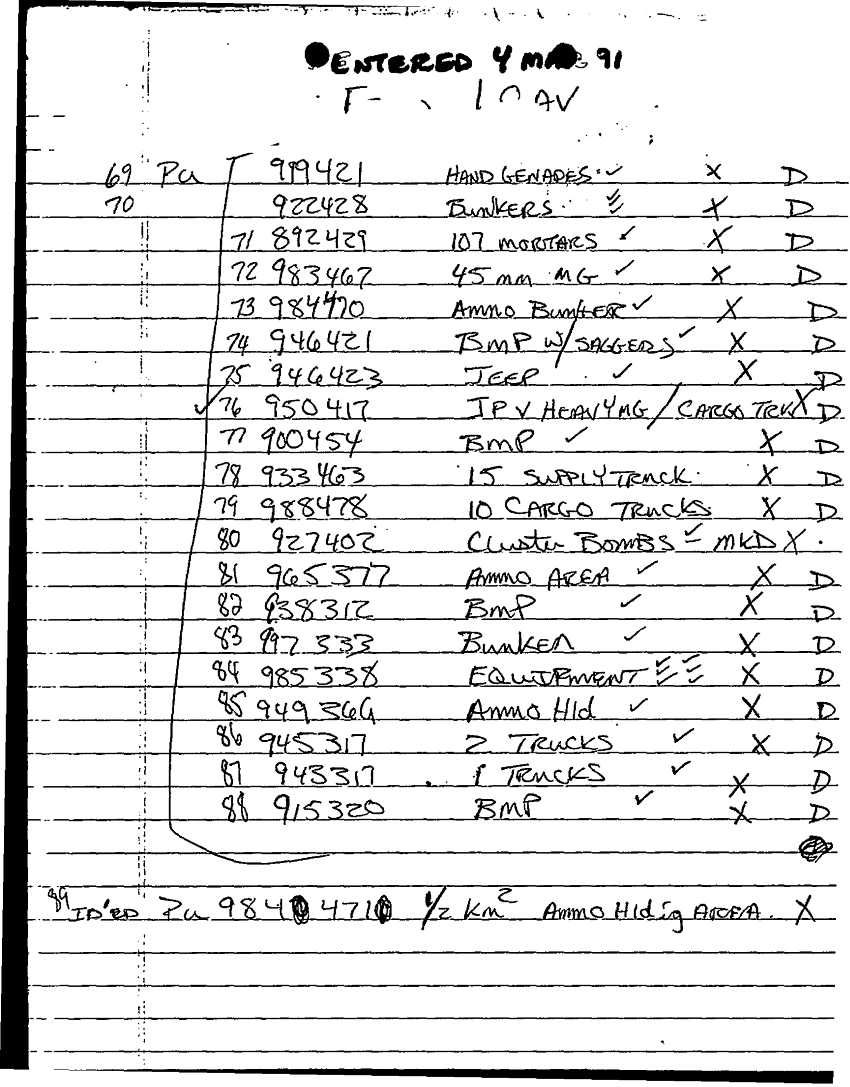 ENTERED 4 MAR 91
AV
69 Pu 919421 HAND GENADES ✓ X D
70 922428 BUNKERS ✓ X D
71 892429 107 MORTARS ✓ X D
72 983467 45 mm MG ✓ X D
73 984470 Ammo BUNKER ✓ X D
74 946421 BMP W/ SAGGERS ✓ X D
75 946423 JEEP ✓ X D
✓ 76 950417 JPV HEAVY MG / CARGO TRK X D
77 900454 BMP ✓ X D
78 933463 15 SUPPLY TRUCK X D
79 988478 10 CARGO TRUCKS X D
80 927402 Cluster BOMBS ✓ - MKD X .
81 965377 Ammo AREA ✓ X D
82 938312 BMP ✓ X D
83 997333 BUNKER ✓ X D
84 985338 EQUIPMENT ✓ X D
85 949366 Ammo Hld ✓ X D
86 945317 2 TRUCKS ✓ X D
87 943317 1 TRUCKS ✓ X D
88 915320 BMP ✓ X D
89 ID'ED Pu 984 471 1/2 Km² Ammo Hldig AREA. X